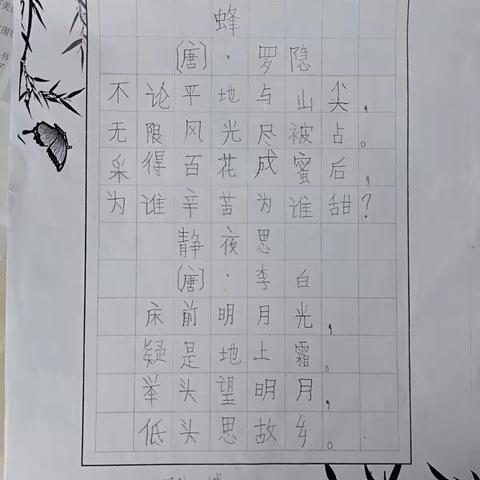 蜂
〔唐〕·罗隐
不论平地与山尖，
无限风光尽被占。
采得百花成蜜后，
为谁辛苦为谁甜？
静夜思
〔唐〕·李白
床前明月光，
疑是地上霜。
举头望明月，
低头思故乡。